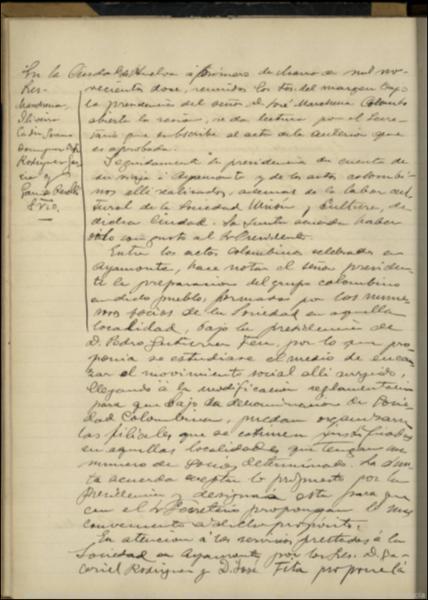 En la Ciudad de Huelva a primero de Marzo de mil no-
vecientos doce, reunidos los Sres. del margen bajo
la presidencia del señor D. José Marchena Colombo
abierta la sesión, se da lectura por el Secre-
tario que suscribe al acta de la anterior que
es aprobada.
Sres.
Marchena,
Oliveira
Domínguez
Rodríguez
García
y
García
Seguidamente la presidencia da cuenta de
su viaje á Ayamonte y de los actos colombi-
nos allí realizados, además de la labor cul-
tural de la Sociedad Unión y Cultura, de
dicha Ciudad. La Junta acuerda haber
oído con gusto al Sr. Presidente.
Entre los actos Colombinos celebrados en
Ayamonte, hace notar el señor presiden-
te la preparación del grupo colombino
en dicho pueblo, formados por los nume-
rosos socios de la Sociedad en aquella
localidad, bajo la presidencia de
D. Pedro Gutierrez Feu, por lo que pro-
ponía se estudiase el medio de encau-
zar el movimiento social allí surgido,
llegando á la modificación reglamentaria
para que bajo la denominación de Socie-
dad Colombina, puedan organizarse
las filiales que se estimen justificadas
en aquellas localidades que tengan un
número de socios determinado. La Jun-
ta acuerda aceptar lo propuesto por la
Presidencia y designa á este para que
con el Sr. Secretario propongan lo más
conveniente á dicho propósito.
En atención á los servicios prestados á la
Sociedad en Ayamonte por los Sres. D. Ga-
briel Rodriguez y D. José Fita propone la